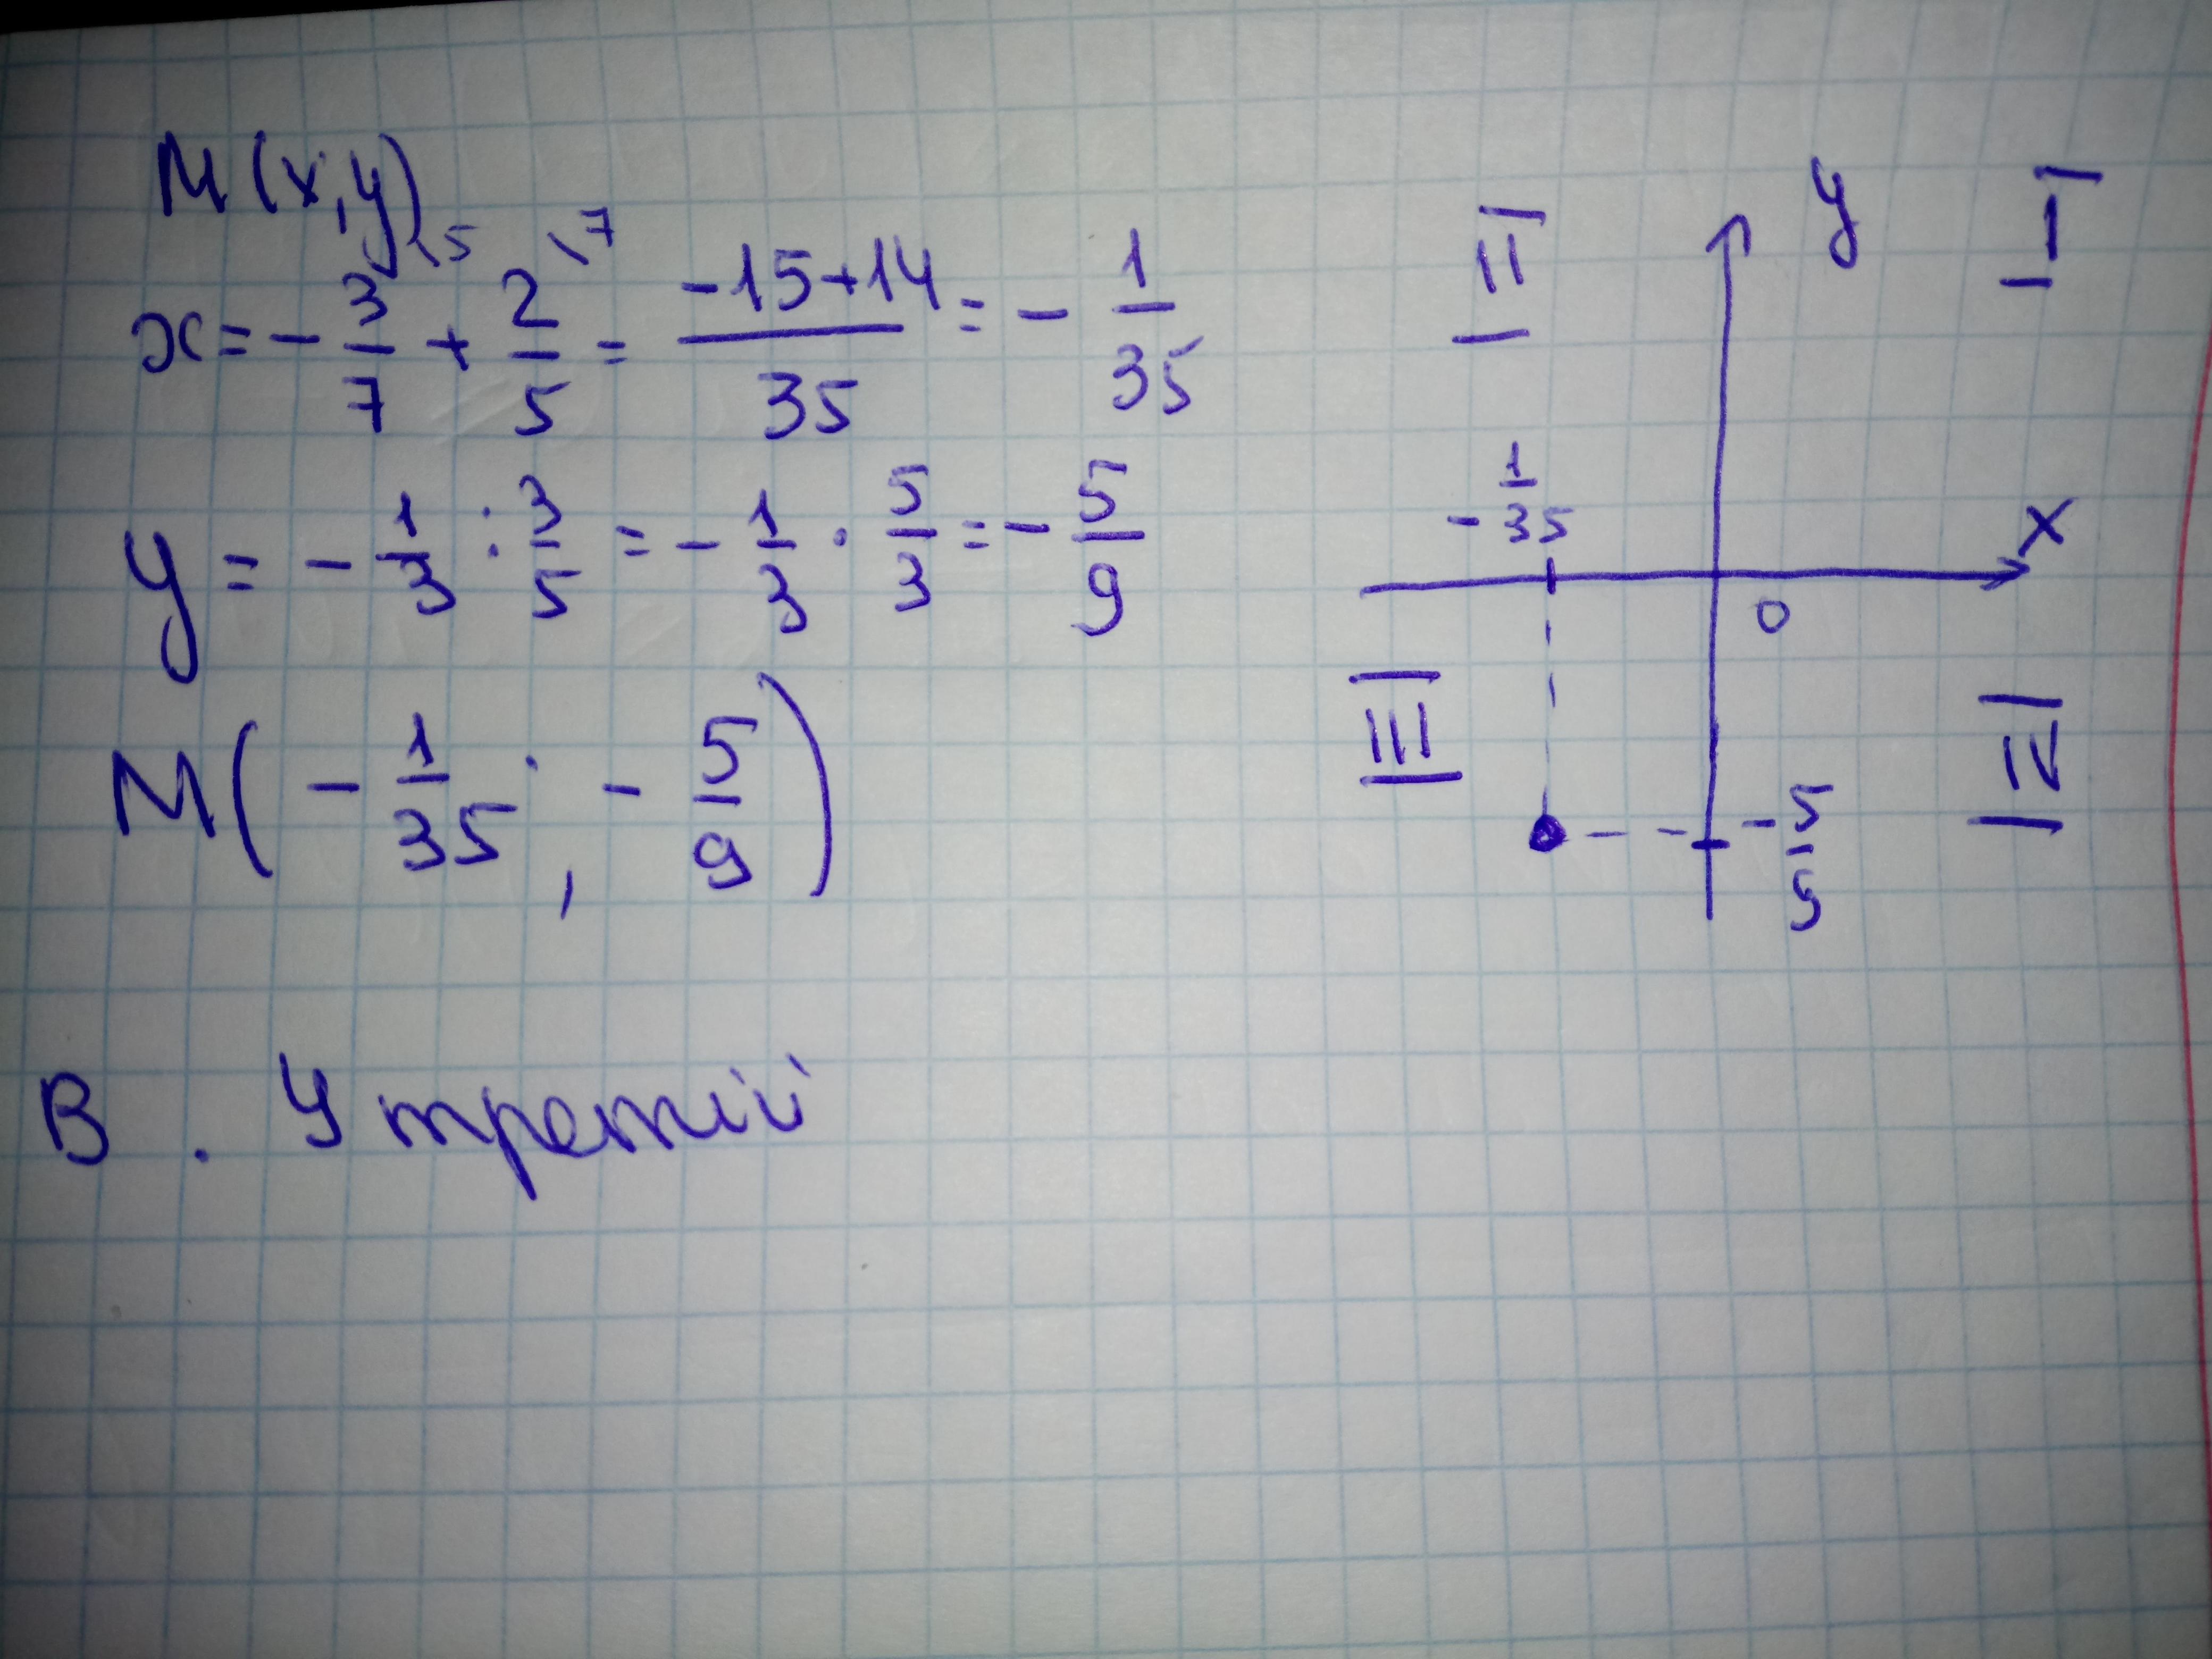 M(x,y)
x = -3/7 \5 + 2/5 \7 = (-15+14)/35 = -1/35
y = -1/3 : 3/5 = -1/3 · 5/3 = -5/9
M(-1/35 ; -5/9)
В. У третій
y
I
II
-1/35
x
0
III
IV
-5/5